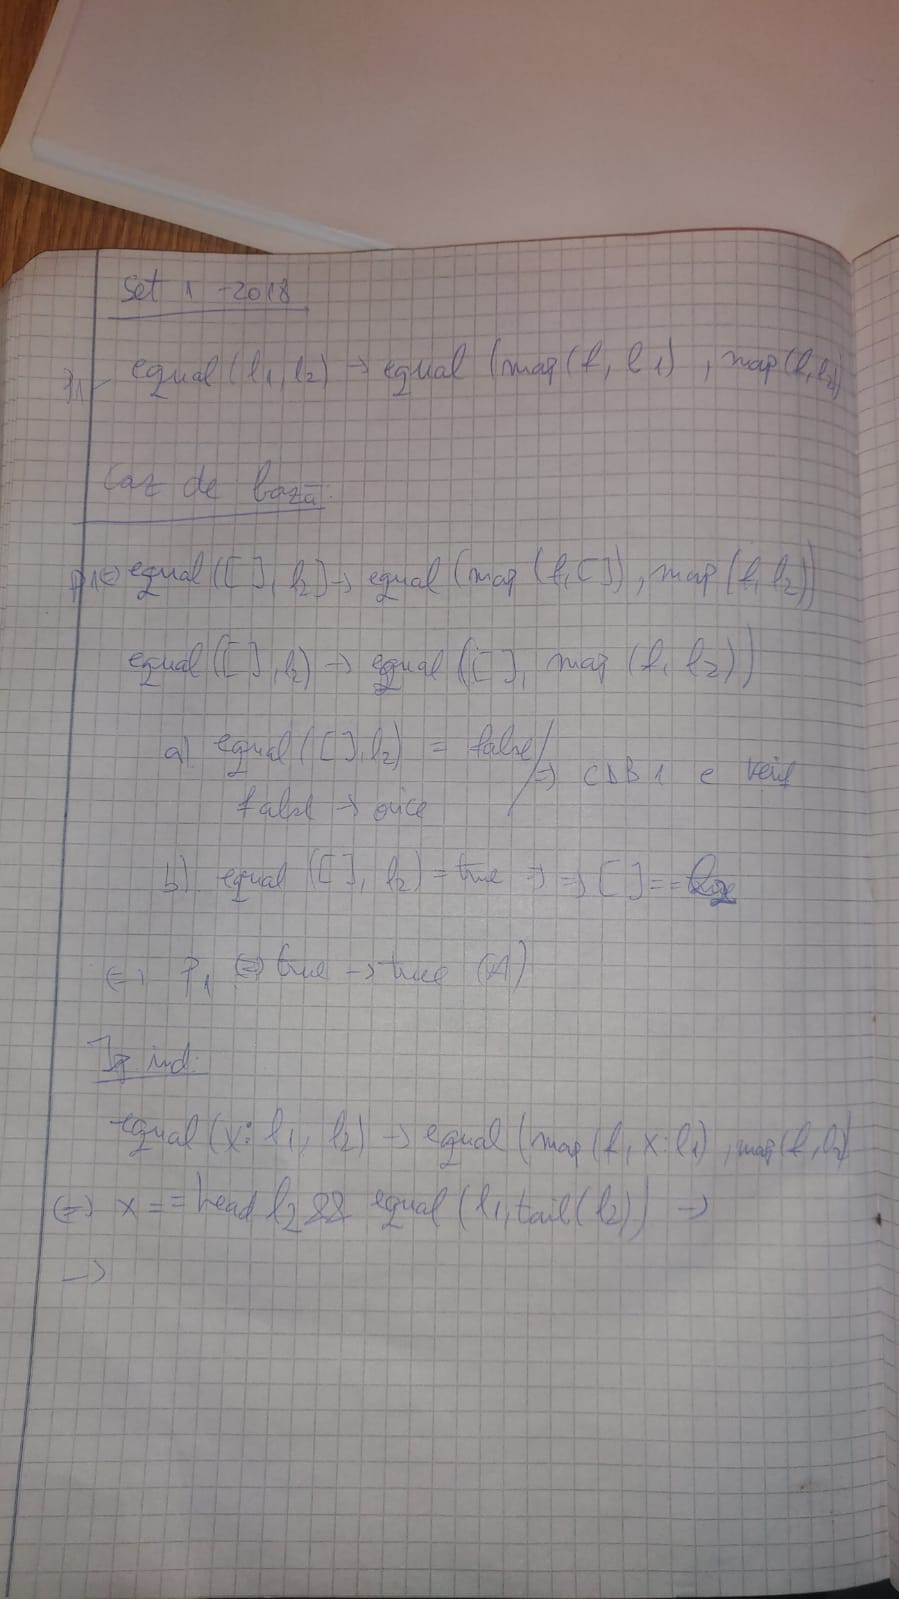 Set 1 -2018
P1 - equal(l1, l2) → equal (map(f, l1), map(f, l2)
Caz de bază:
P1(=) equal([], l2] → equal (map (f, []), map (f, l2))
equal([], l2) → equal ([], map (f, l2))
a) equal([], l2) = false / => CDB 1 e verif
false → orice
b) equal ([], l2) = true => => [] == l2
(=) P1 (=) true → true (A)
Ip ind:
equal(x: l1, l2) → equal (map(f, x: l1), map(f, l2)
(=) x == head l2 && equal (l1, tail(l2)) →
→